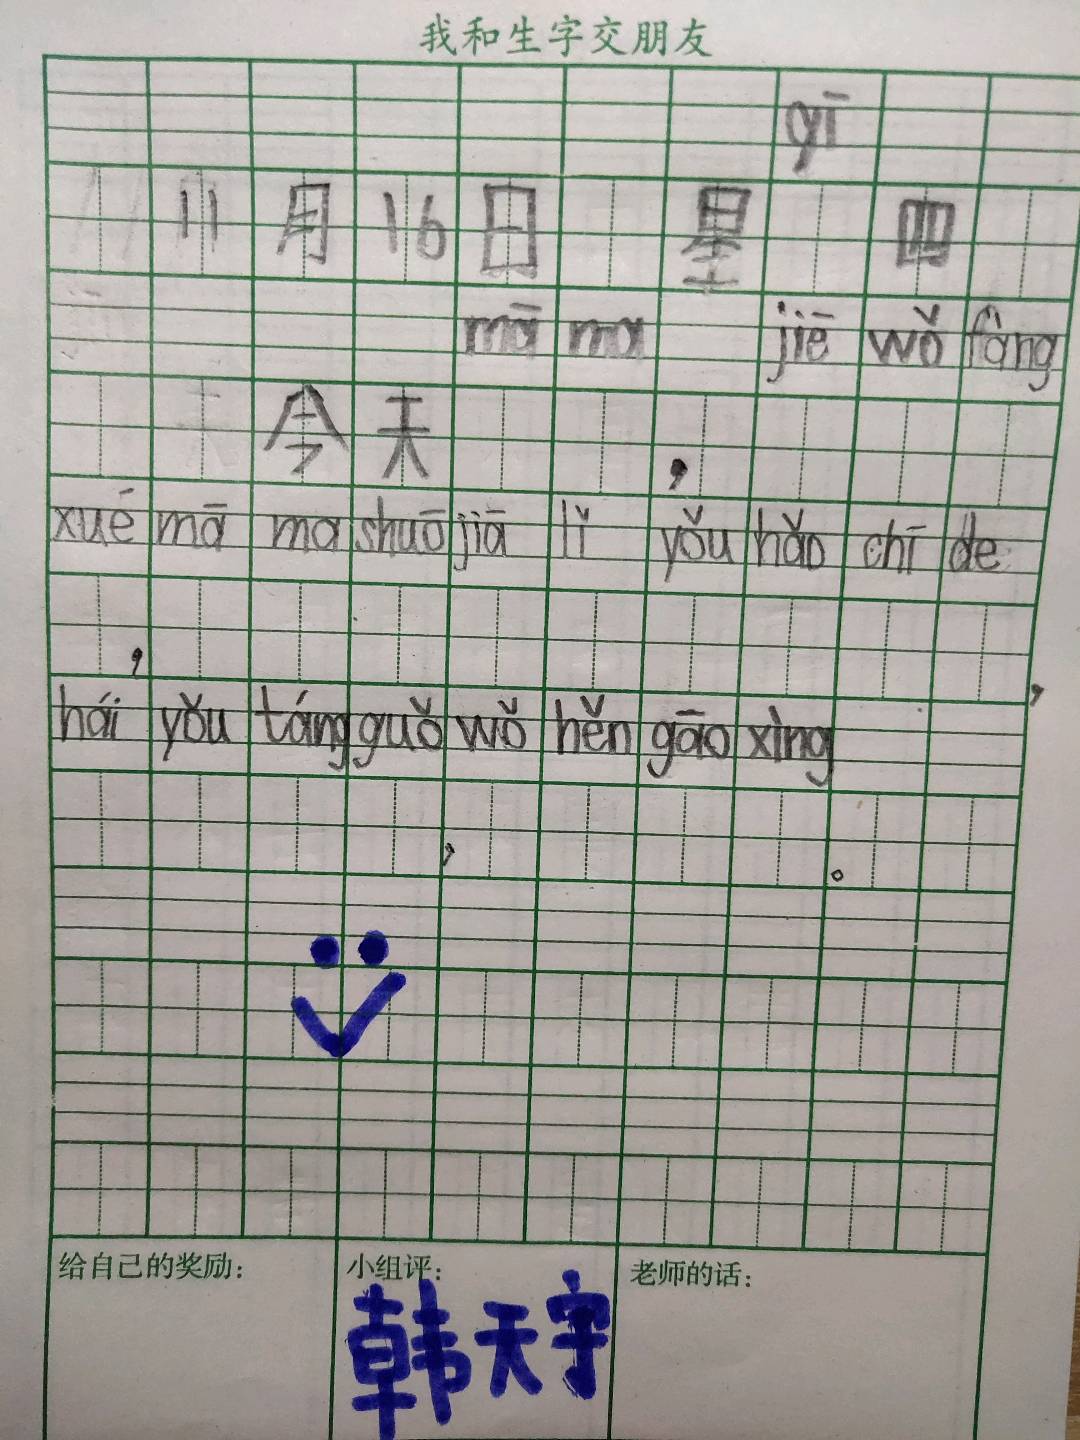 我和生字交朋友
qī
11月16日 星 四
mā ma jiē wǒ fàng
今天 ,
xué mā ma shuō jiā lǐ yǒu hǎo chī de
, ,
hái yǒu táng guǒ wǒ hěn gāo xìng
, 。
给自己的奖励: 小组评: 老师的话:
韩天宇